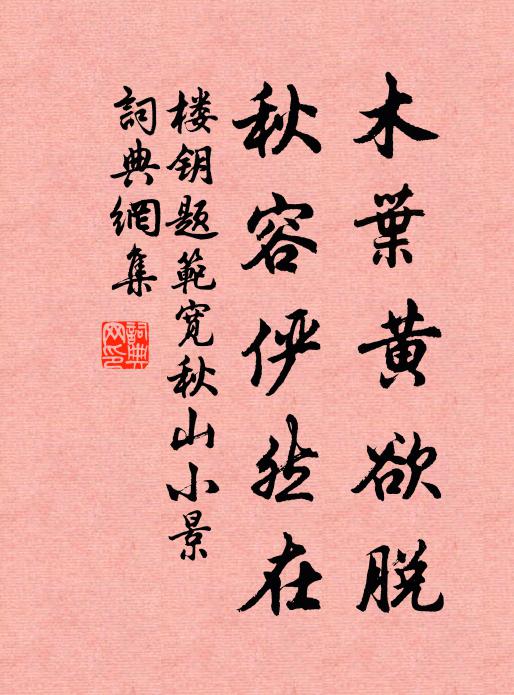 木葉黄欲脱
秋容俨然在
楼钥题範宽秋山小景
詞典網集
詞典網印